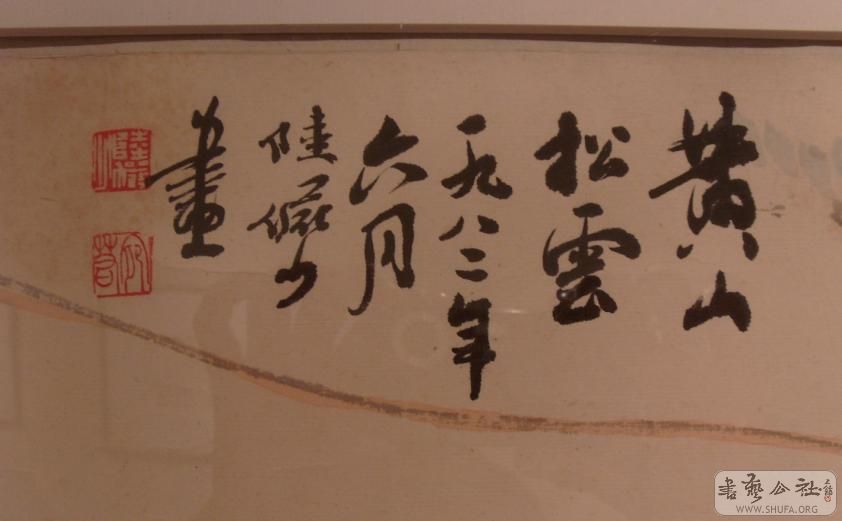 黄山
松雲
一九八二年
六月
陸儼少
畫
書藝公社
WWW.SHUFA.ORG